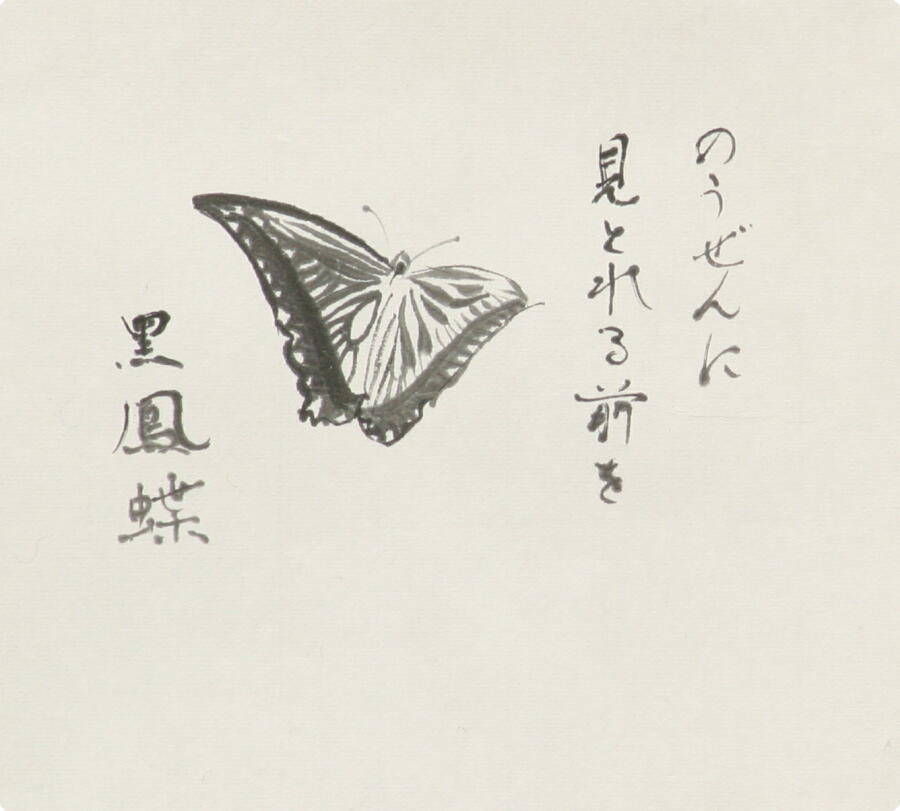 のうぜんに
見とれる前を
黒鳳蝶